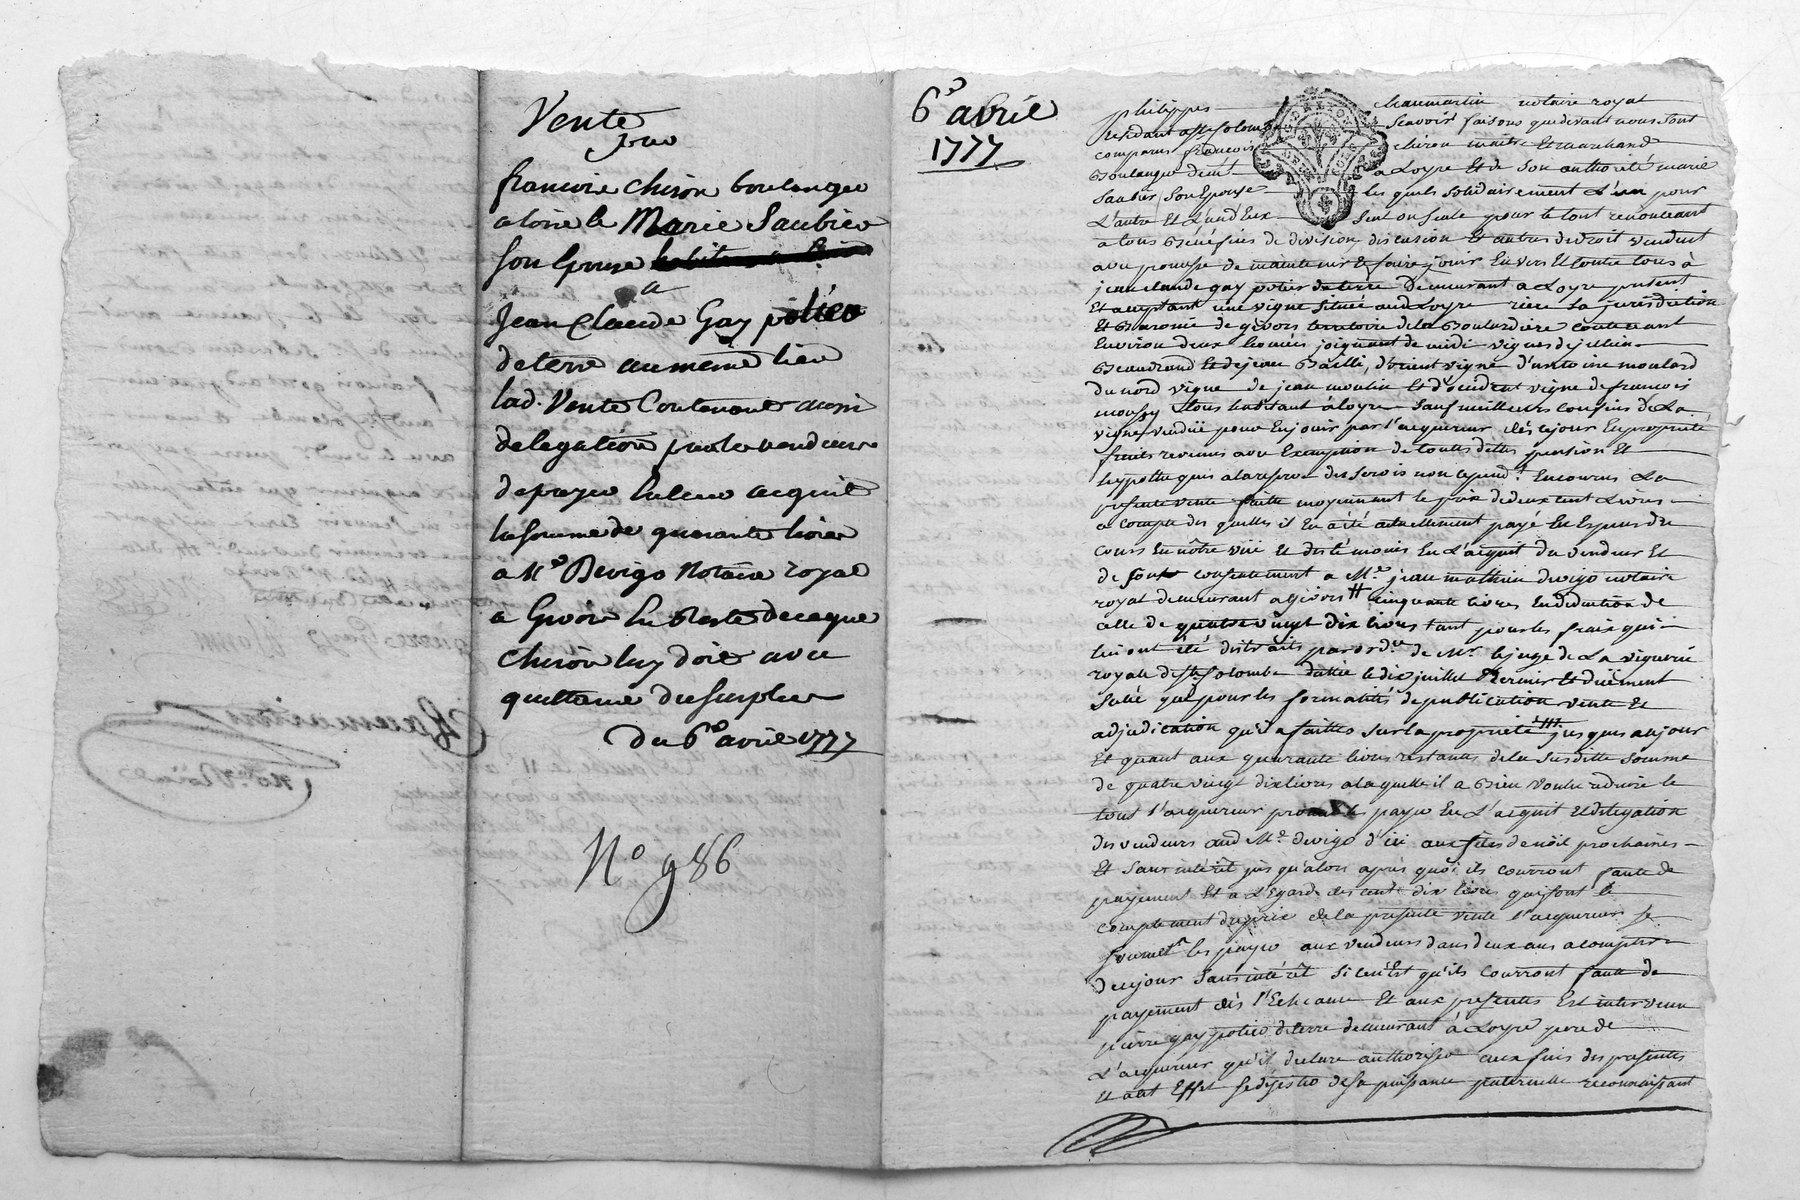 Vente
pour
francoise chiron boulanger
a loire & Marie Saubier
son Epouse
a
Jean Claude Gay potier
de terre au meme lieu
lad. Vente Contenant aussi
delegation par les vendeurs
de payer en leur acquit
la somme de quarante livres
a Me Devigo Notaire royal
a Givors En Reste de ce que
Chiron luy doit avec
quittance du surplus
Du 6e avril 1777
No 986
6e avril
1777
philippes Chaumartin notaire royal
Residant a ste Colombe Scavoir faisons que devant nous sont
comparus francois chiron maitre Et marchand
Boulanger demt a Loyre Et de son authorité marie
Saubier son Epouse les quels solidairement L'un pour
L'autre Et L'un d'Eux seul ou seule pour le tout renonceant
a tous Bénéfices de division, discution Et autres de droit vendent
avec promesse de maintenir & faire jouir Envers Et Contre tous à
jean claude gay potier de terre Demeurant a Loyre present
Et acceptant une vigne Située aud Loyre riere La jurisdiction
Et Baronie de givors territoire de la Boulardiere contenant
Environ deux homées joignant de midi vignes de julien
Beaudrand & de jean Bailli, d'orient vigne d'antoine moulard
du nord vigne de jean moulin Et d'occident vigne de francois
tous habitant à Loyre Sauf meilleurs confins de La
vigne vendüe pour En jouir par l'acquereur dès ce jour En propriété
fruits revenus avec Exemption de touttes dettes pension Et
hypotheques a la reserve des servis non cepend.t Encourus La
presente vente faitte moyennant le prix de deux cent Livres
a compte des quelles il En a été actuellement payé En Especes du
cours En nôtre vüe Et des témoins En L'acquit du vendeur Et
de son consentement a Me jean mathieu devigo notaire
royal demeurant a givors cinquante livres En deduction de
celle de quatre vingt dix livres tant pour les fraix qui
lui ont été distraits par ord.ce de Mr le juge de La viguerie
royale de ste Colombe dattée le dix juillet dernier Et düement
Scellé que pour les formalités de publication vente Et
adjudication qu'il a faittes sur la proprieté jusques aujour
Et quant aux quarante livres restantes de la susditte somme
de quatre vingt dix livres a la quelle il a Bien voulu reduire le
tout l'acquereur promet de payer En L'acquit Et delegation
des vendeurs aud Me devigo d'ici aux fetes de nöel prochaines
Et sans intérêt jusqu'alors après quoi ils courront faute de
payement Et a L'Egard des cent dix livres qui font le
complement du prix de la presente vente l'acquereur se
soumet les payer aux vendeurs dans deux ans a compter
de ce jour Sans intérêt Si ce n'Est qu'ils courront faute de
payement dès l'Echeance Et aux presentes Est intervenu
pierre gay potier de terre demeurant à Loyre pere de
L'acquereur qu'il declare authoriser aux fins des presentes
Et a cet Effet se désister de sa puissance paternelle reconnaissant